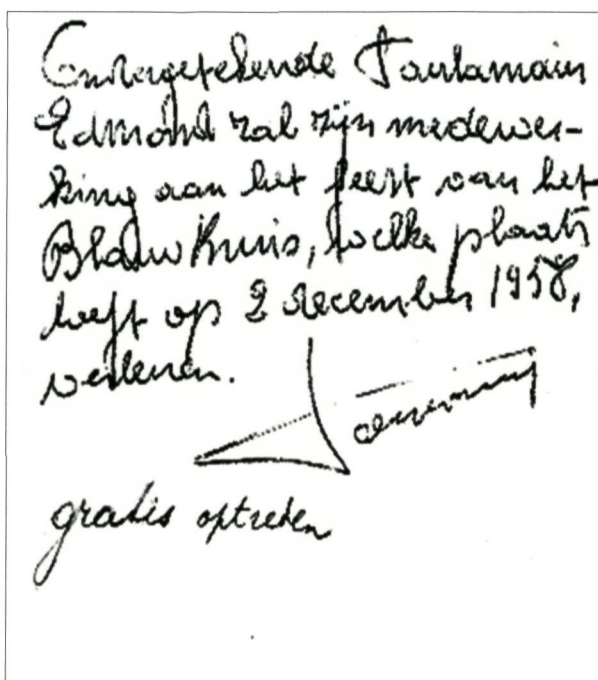 Ondergetekende
Edmond zal zijn medewer-
king aan het feest van het
Blauw Kruis, welke plaats
heeft op 2 december 1958,
verlenen.
gratis optreden